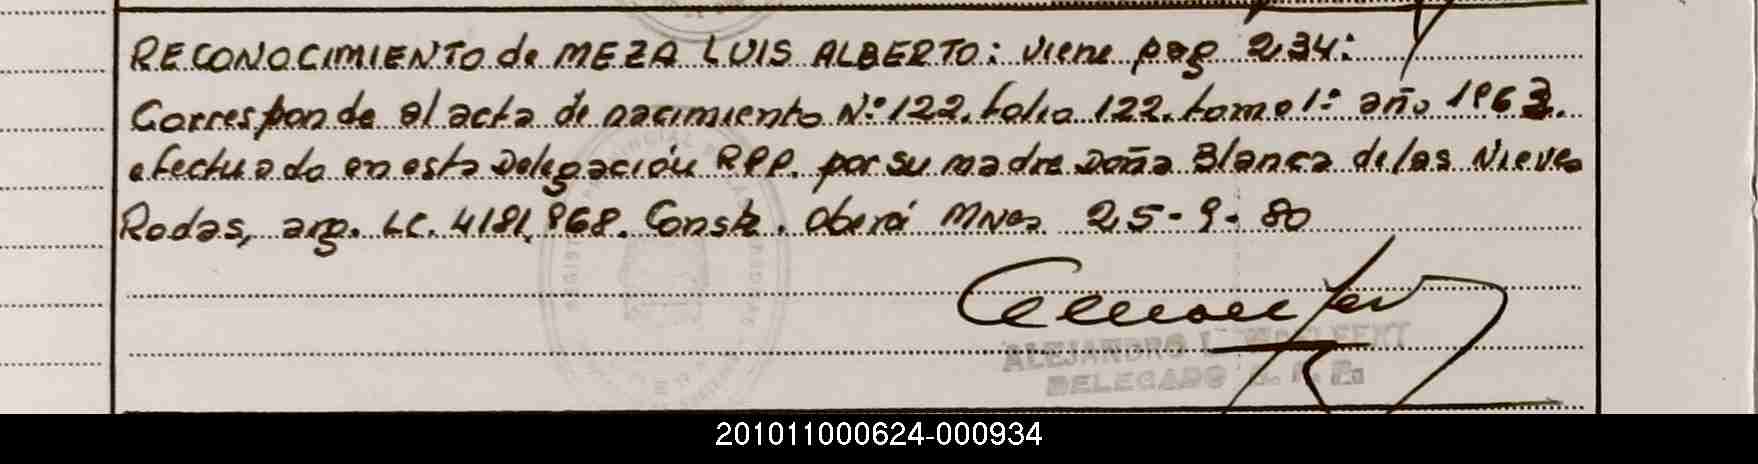 RECONOCIMIENTO de MEZA LUIS ALBERTO: viene pag 234:
Corresponde al acta de nacimiento Nº 122. folio 122. tomo 1º año 1963.
efectuado en esta Delegación RPP. por su madre Doña Blanca de las Nieves
Rodas, arg. LC. 4181.868. Conste. Oberá MNes 25-9-80
ALEJANDRO L.
DELEGADO R. P. P.
201011000624-000934